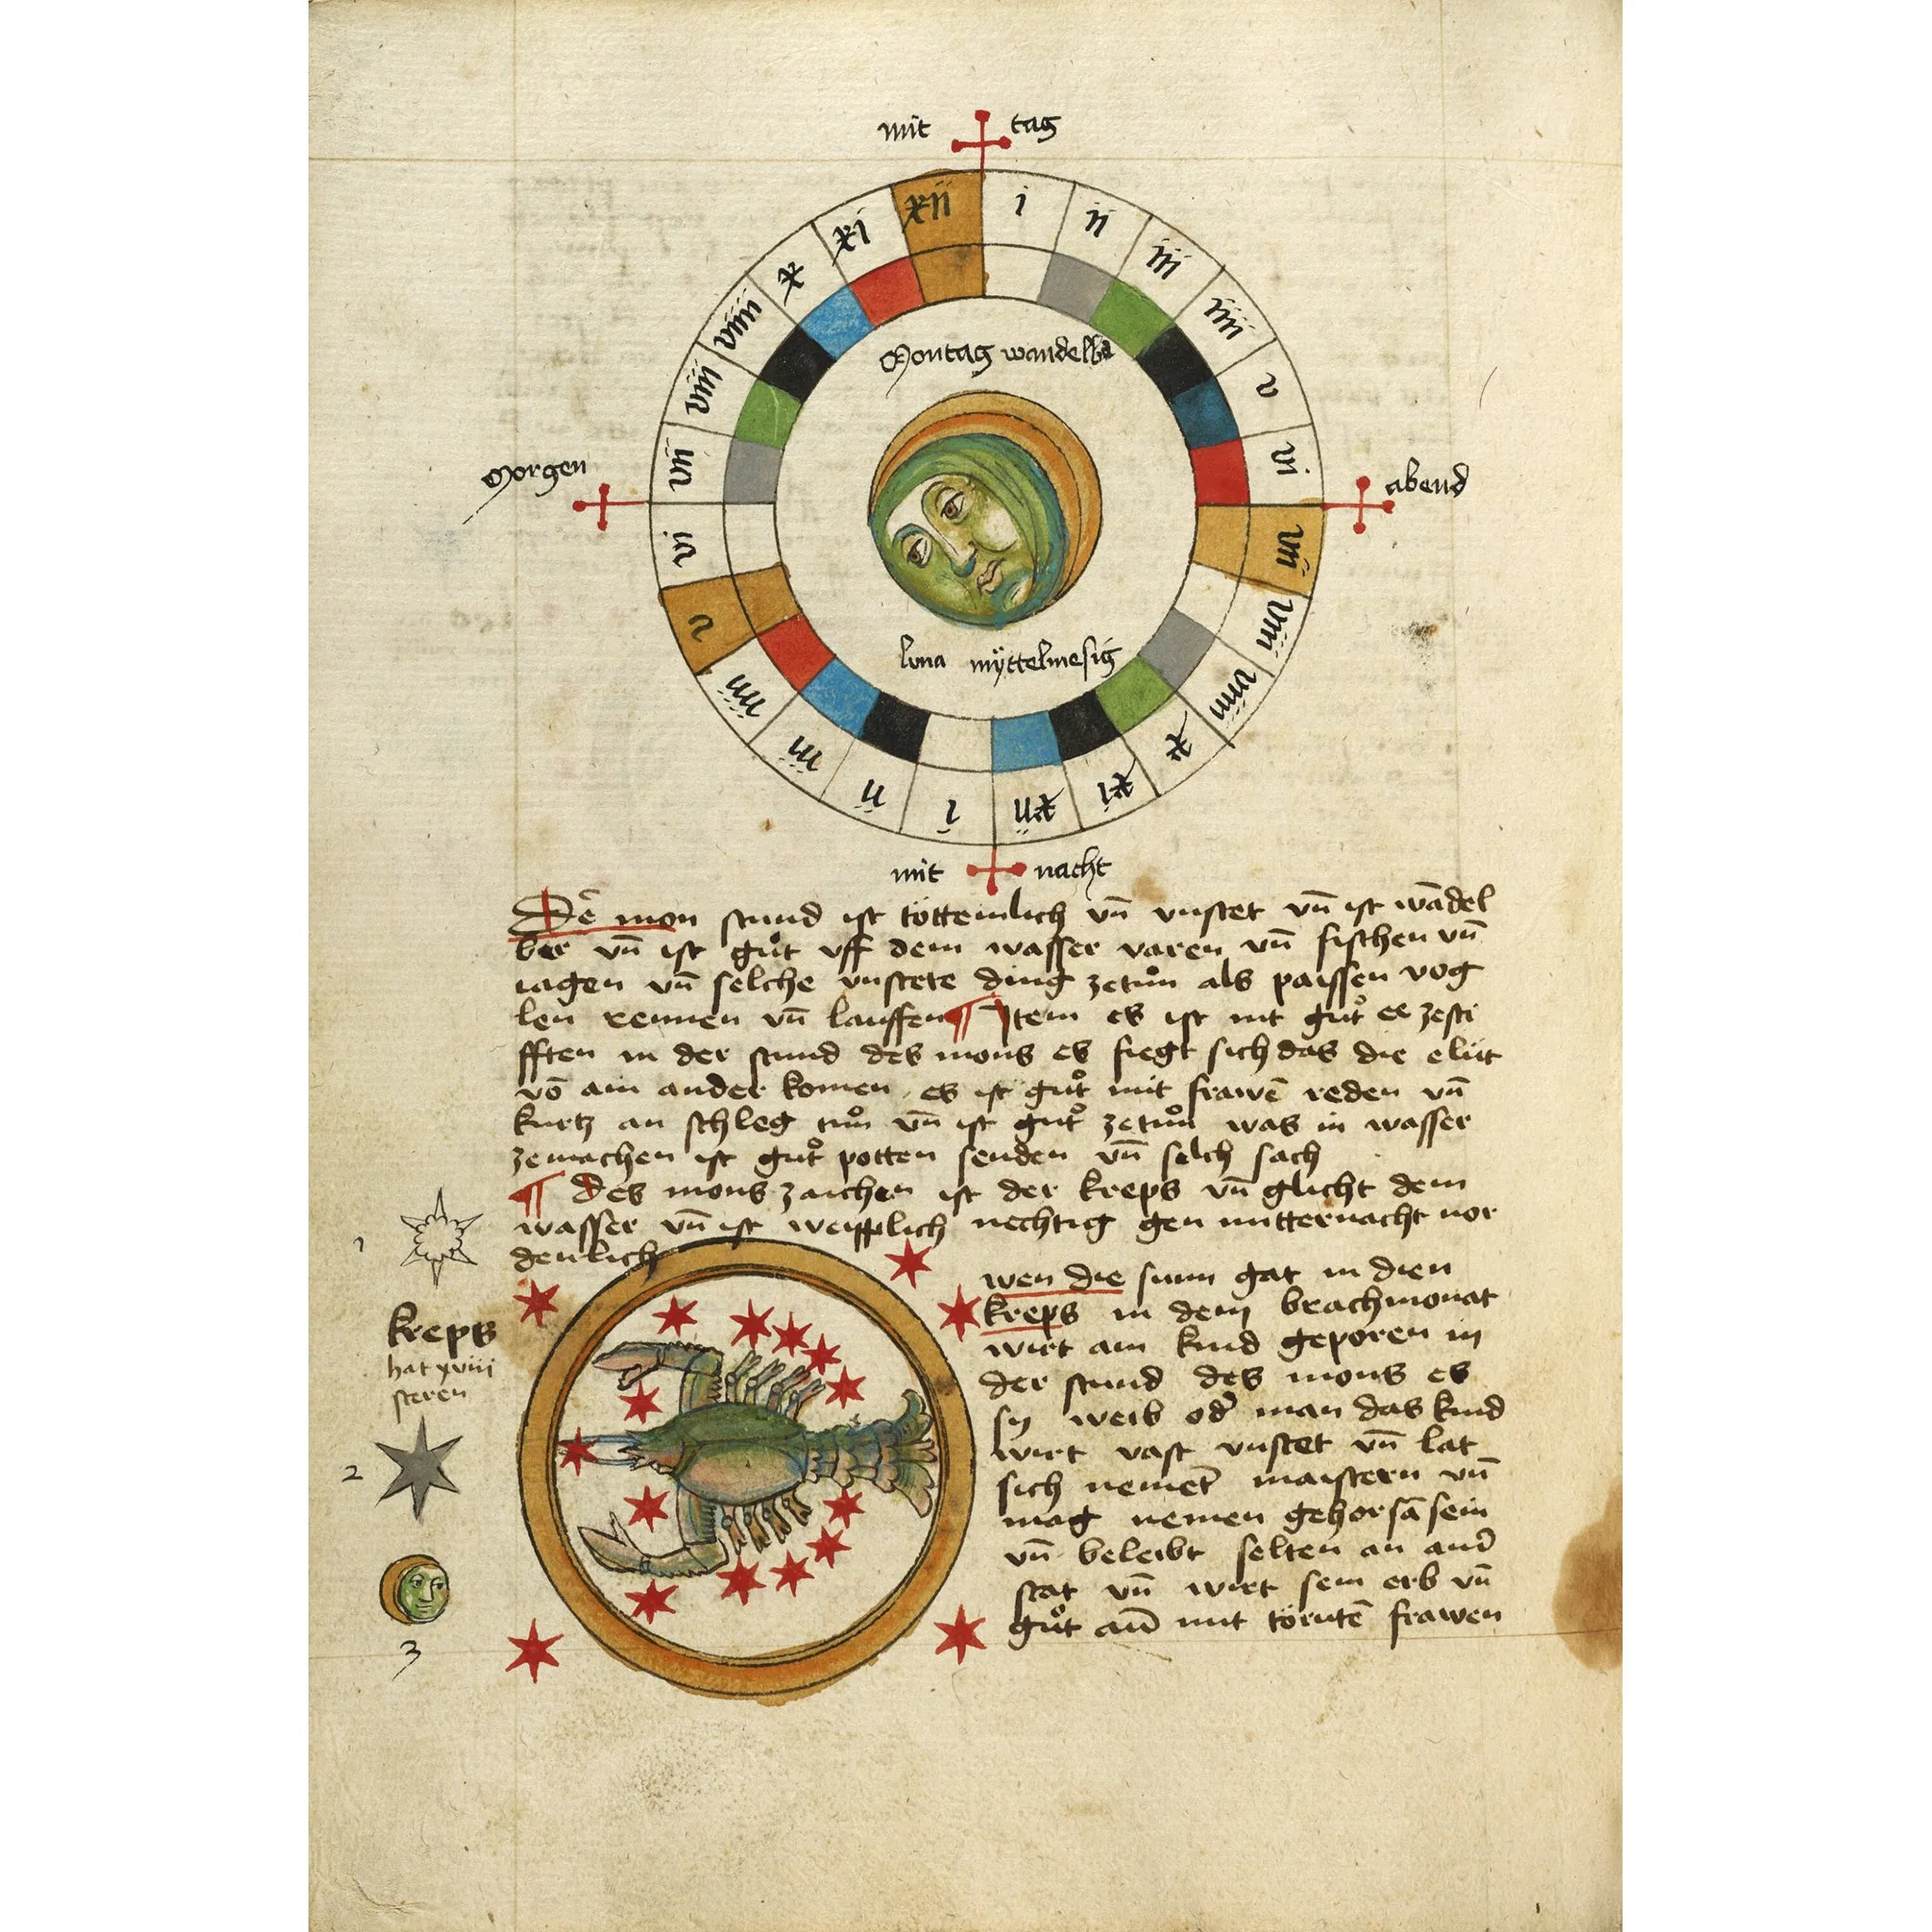 mit tag
i
ii
iii
iiii
v
vi
vii
viii
viiii
x
xi
xii
i
ii
iii
iiii
v
vi
vii
viii
viiii
x
xi
xii
Morgen
abend
Montag wandelbar
luna myttelmesig
mit nacht
Dē mon stund ist töttemlich vn̄ vnstet vn̄ ist wādel
ber vn̄ ist gůt vff dem wasser varen vn̄ fischen vn̄
iagen vn̄ selche vnstete ding zetůn als paissen vog
len rennen vn̄ lauffen ¶ Jtem es ist nit gůt ee zesti
fften in der stund des mons es fiegt sich das die elüt
vō ain ander komen es ist gůt mit frawē reden vn̄
kurtz an schleg tůn vn̄ ist gůt zetůn was in wasser
zemachen ist gůt potten senden vn̄ selch sach
¶ des mons zaichen ist der kreps vn̄ glicht dem
wasser vn̄ ist weipplich nechtig gen mitternacht nor
denlich
1
kreps
hat xviii
steren
2
3
wen die sunn gat in dien
kreps in dem brachmonat
wirt ain kind geporen in
der stund des mons es
sy weib od̄ man das kind
wirt vast vnstet vn̄ lat
sich nemet̄ maistern vn̄
mag nemen gehorsā sein
vn̄ beleibt selten an and̄
stat vn̄ wirt sein erb vn̄
gůt mit törntē frawen